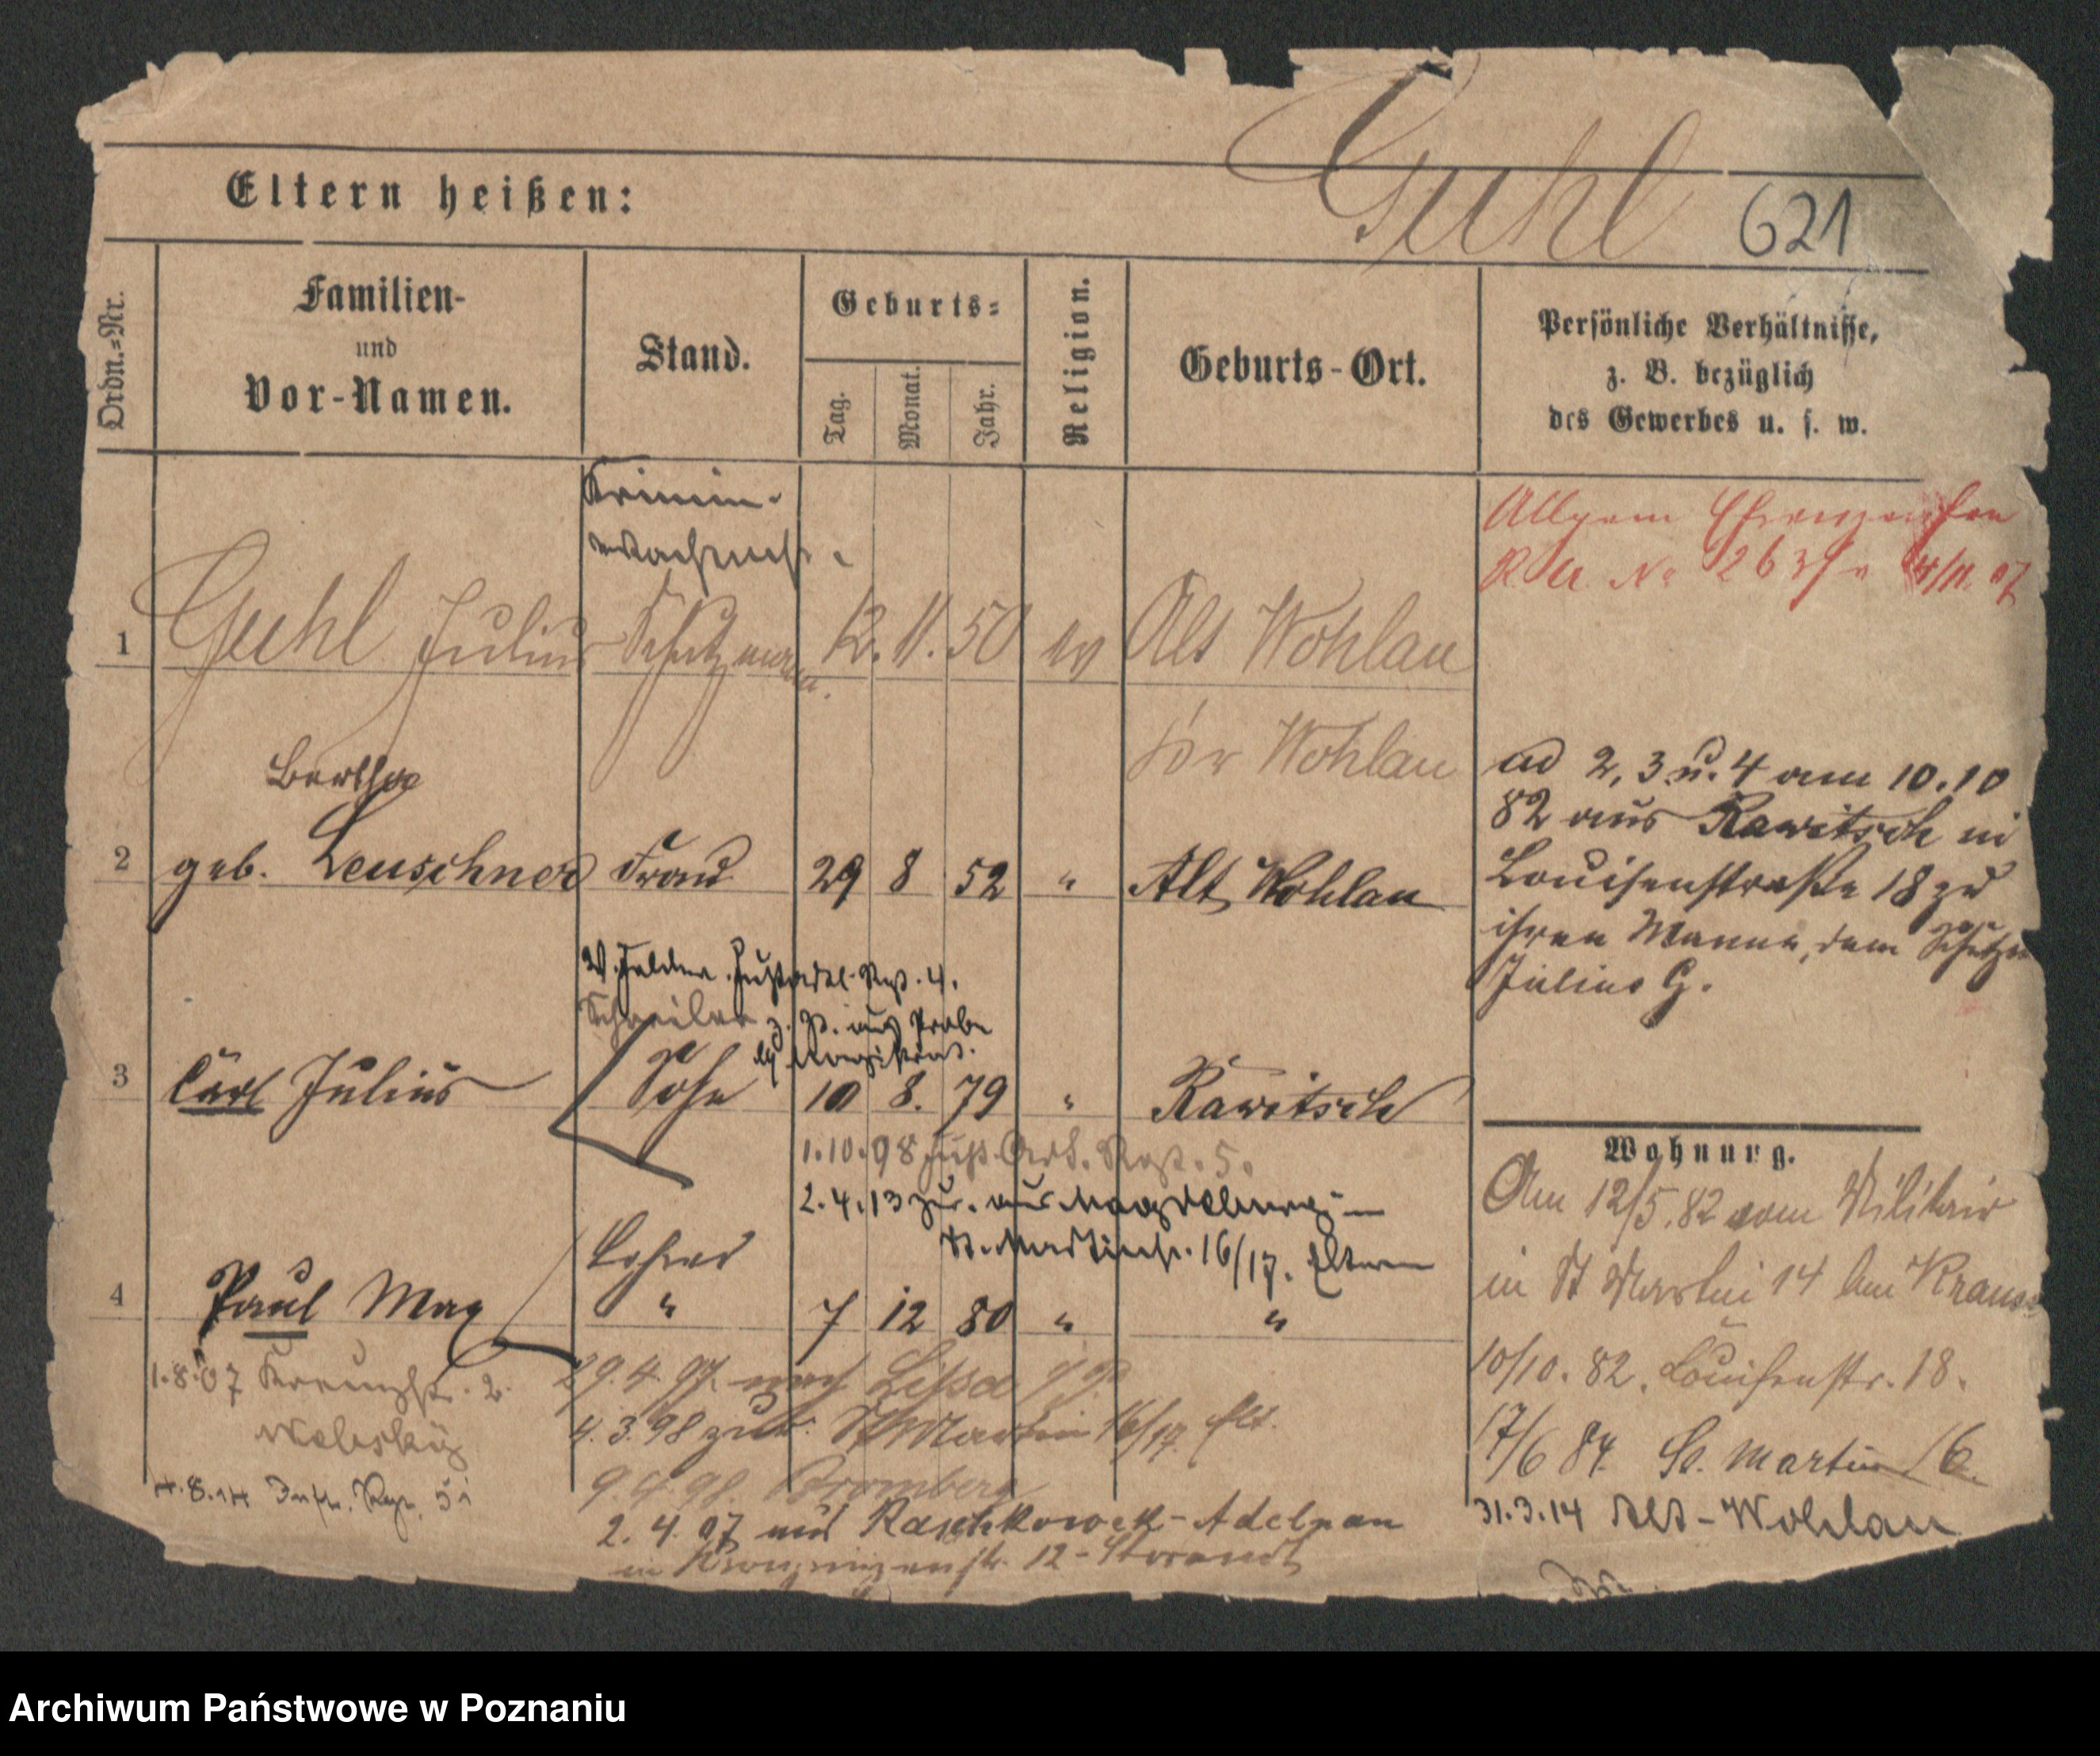 Guhl
621
Eltern heißen:
Ordn.=Nr.
Familien-
und
Vor-Namen.
Stand.
Geburts=
Tag.
Monat.
Jahr.
Religion.
Geburts-Ort.
Persönliche Verhältnisse,
z. B. bezüglich
des Gewerbes u. s. w.
Krimin-
Allgem Ehrenzeichen
4/11. 07
1 Guhl Julius Schutzmann. 12. 11. 50 ev Alt Wohlau
Wohlau
Bertha
2 geb. Leuschner Frau 29 8 52 " Alt Wohlau
ad 2, 3 u. 4 am 10.10
82 aus Rawitsch in
Louisenstraße 18 zu
ihren Manne, dem Schutzm
Julius G.
Schreiber z. P. auf Probe
b/ Magistrat.
3 Carl Julius Sohn 10 8. 79 " Rawitsch
1.10.98 Art. Rgt. 5.
2.4.13 zur. aus Magdeburg in
St. Martinstr. 16/17. Eltern
Lehrer
4 Paul Max " 7 12 80 " "
1.8.07 Kreuzstr. 2.
4.8.14 Inftr. Rgt.
29.4.97. nach Lissa
4.3.98 zur. St Martin 16/17. Elt.
9.4.98. Bromberg
2.4.07 aus Raschkowek-Adelnau
in 12 -
Wohnung.
Am 12/5.82 vom Militair
in St Martin 14 bei Kraus
10/10. 82. Louisenstr. 18.
17/6 84. St. Martin 16.
31.3.14 Alt-Wohlau
Archiwum Państwowe w Poznaniu